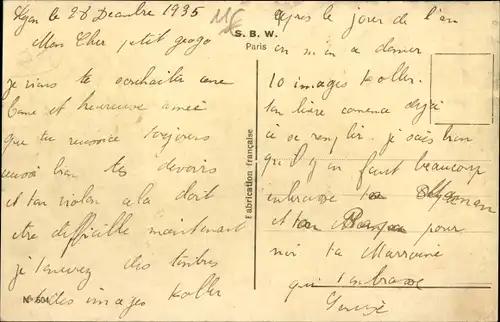 le 28 Decembre 1935
Mon Cher petit gogo
je viens te souhaiter une
bone et heureuse année
que tu reussice toujours
aussi bien tes devoirs
et ton violon cela doit
etre difficille maintenant
je t'envoyez des timbres
et des images Koller
N° 604
S.B.W.
Paris
Fabrication française
après le jour de l'an
on m'en a donner
10 images Koller
ton livre comence deja
a se remplir. je sais bien
qu'il y en faut beaucoup
embrasse ta Maman
et ton Papa pour
moi ta Marraine
qui t'embrasse